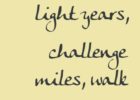 light years,
challenge
miles, walk